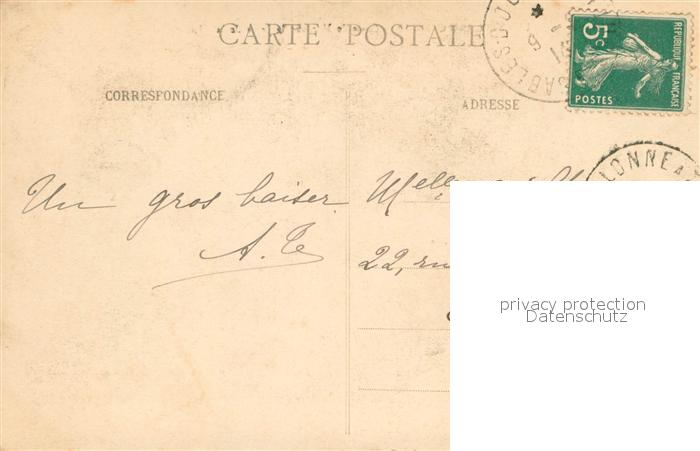 CARTE POSTALE
CORRESPONDANCE
ADRESSE
5c
REPUBLIQUE FRANÇAISE
POSTES
SABLES-D'O
LONNE
Un gros baiser
Melle
22, ru
privacy protection
Datenschutz